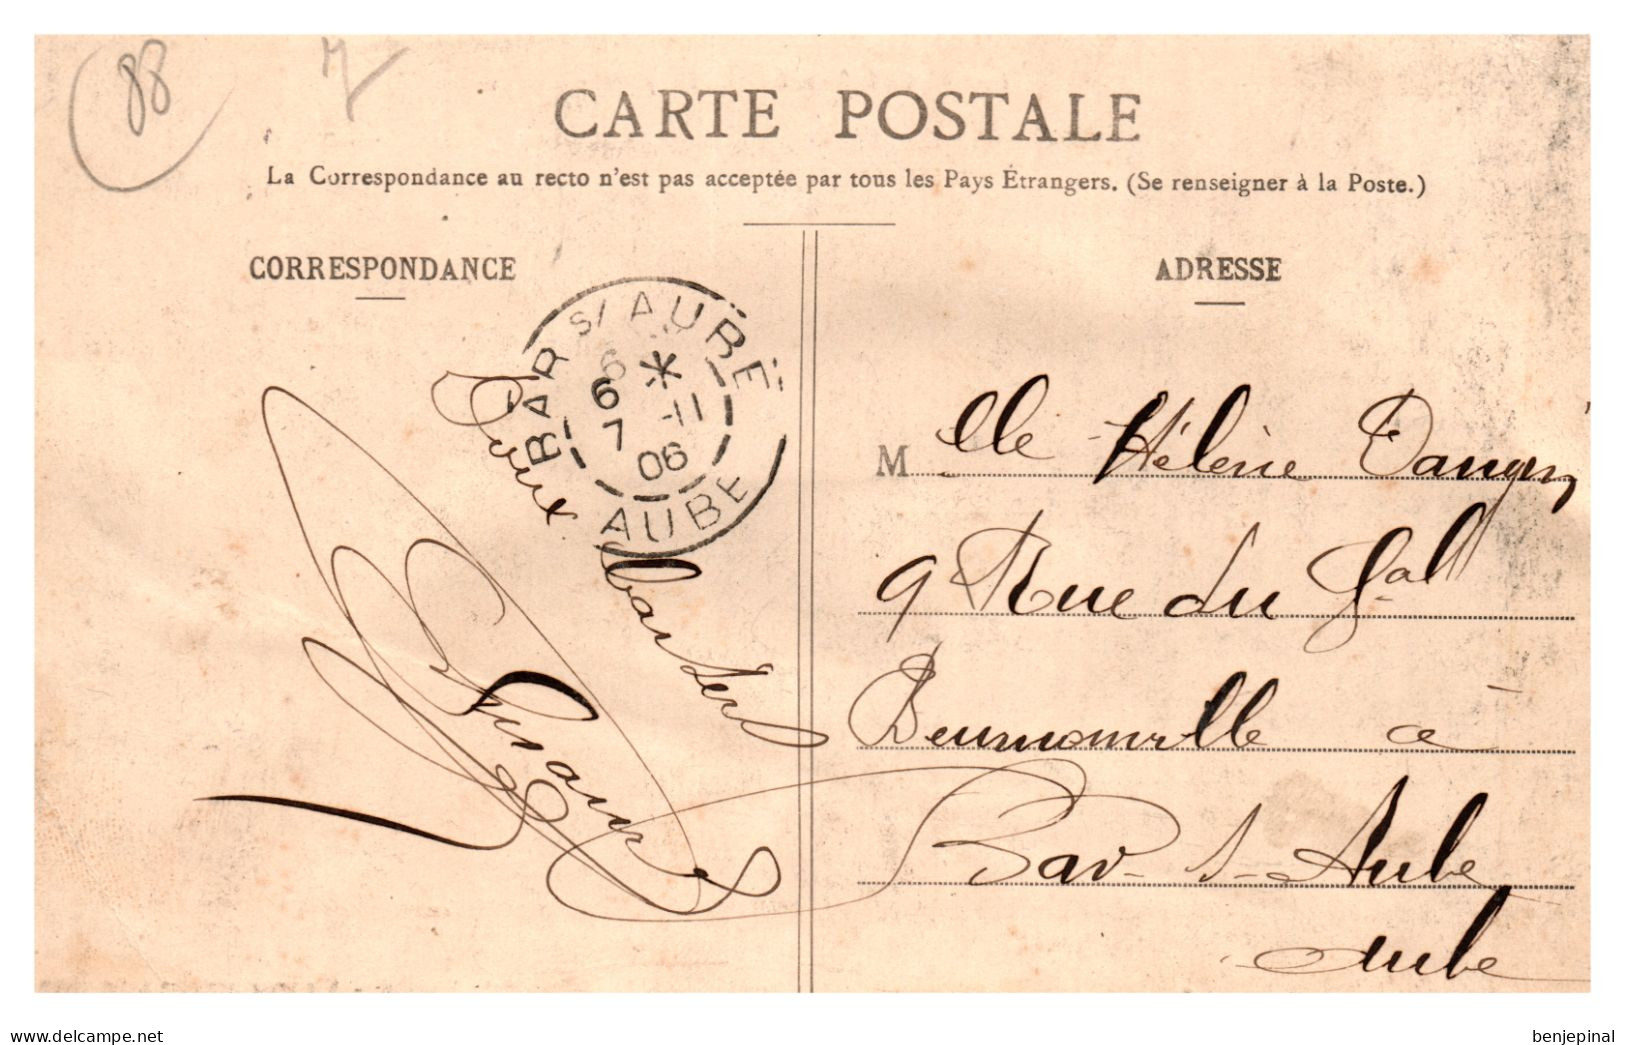 88
CARTE POSTALE
La Correspondance au recto n'est pas acceptée par tous les Pays Étrangers. (Se renseigner à la Poste.)
CORRESPONDANCE
ADRESSE
BAR S/ AUBE
6 *
7 -11
06
AUBE
Doux
baisers
M elle Hélène
9 Rue du Gal
Beurnonville a
Bar-s-Aube
Aube
delcampe.net
benjepinal